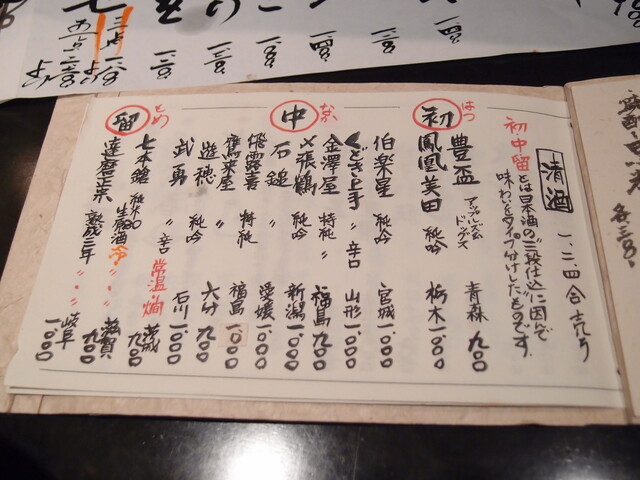 清酒
一、二、四合売り
初中留とは日本酒の"三段仕込"に因んで
味わいをタイプ分けしたものです。
初 はつ
豊盃 アップルズム ドッグス 青森 九〇〇
鳳凰美田 純吟 栃木 一、〇〇〇
中 なか
伯楽星 純吟 宮城 一、〇〇〇
くどき上手 〃 辛口 山形 一、〇〇〇
金澤屋 特純 〃 福島 九〇〇
〆張鶴 純吟 新潟 一、〇〇〇
石鎚 〃 愛媛 一、〇〇〇
飛露喜 特純 福島 一、〇〇〇
鷹来屋 〃 大分 九〇〇
遊穂 純吟 石川 一、〇〇〇
武勇 〃 辛口 茨城 九〇〇
留 とめ
常温 燗
七本鎗 純米80 生原酒 冷 滋賀 九〇〇
達磨正宗 熟成三年 〃・〃・ 岐阜 一、〇〇〇